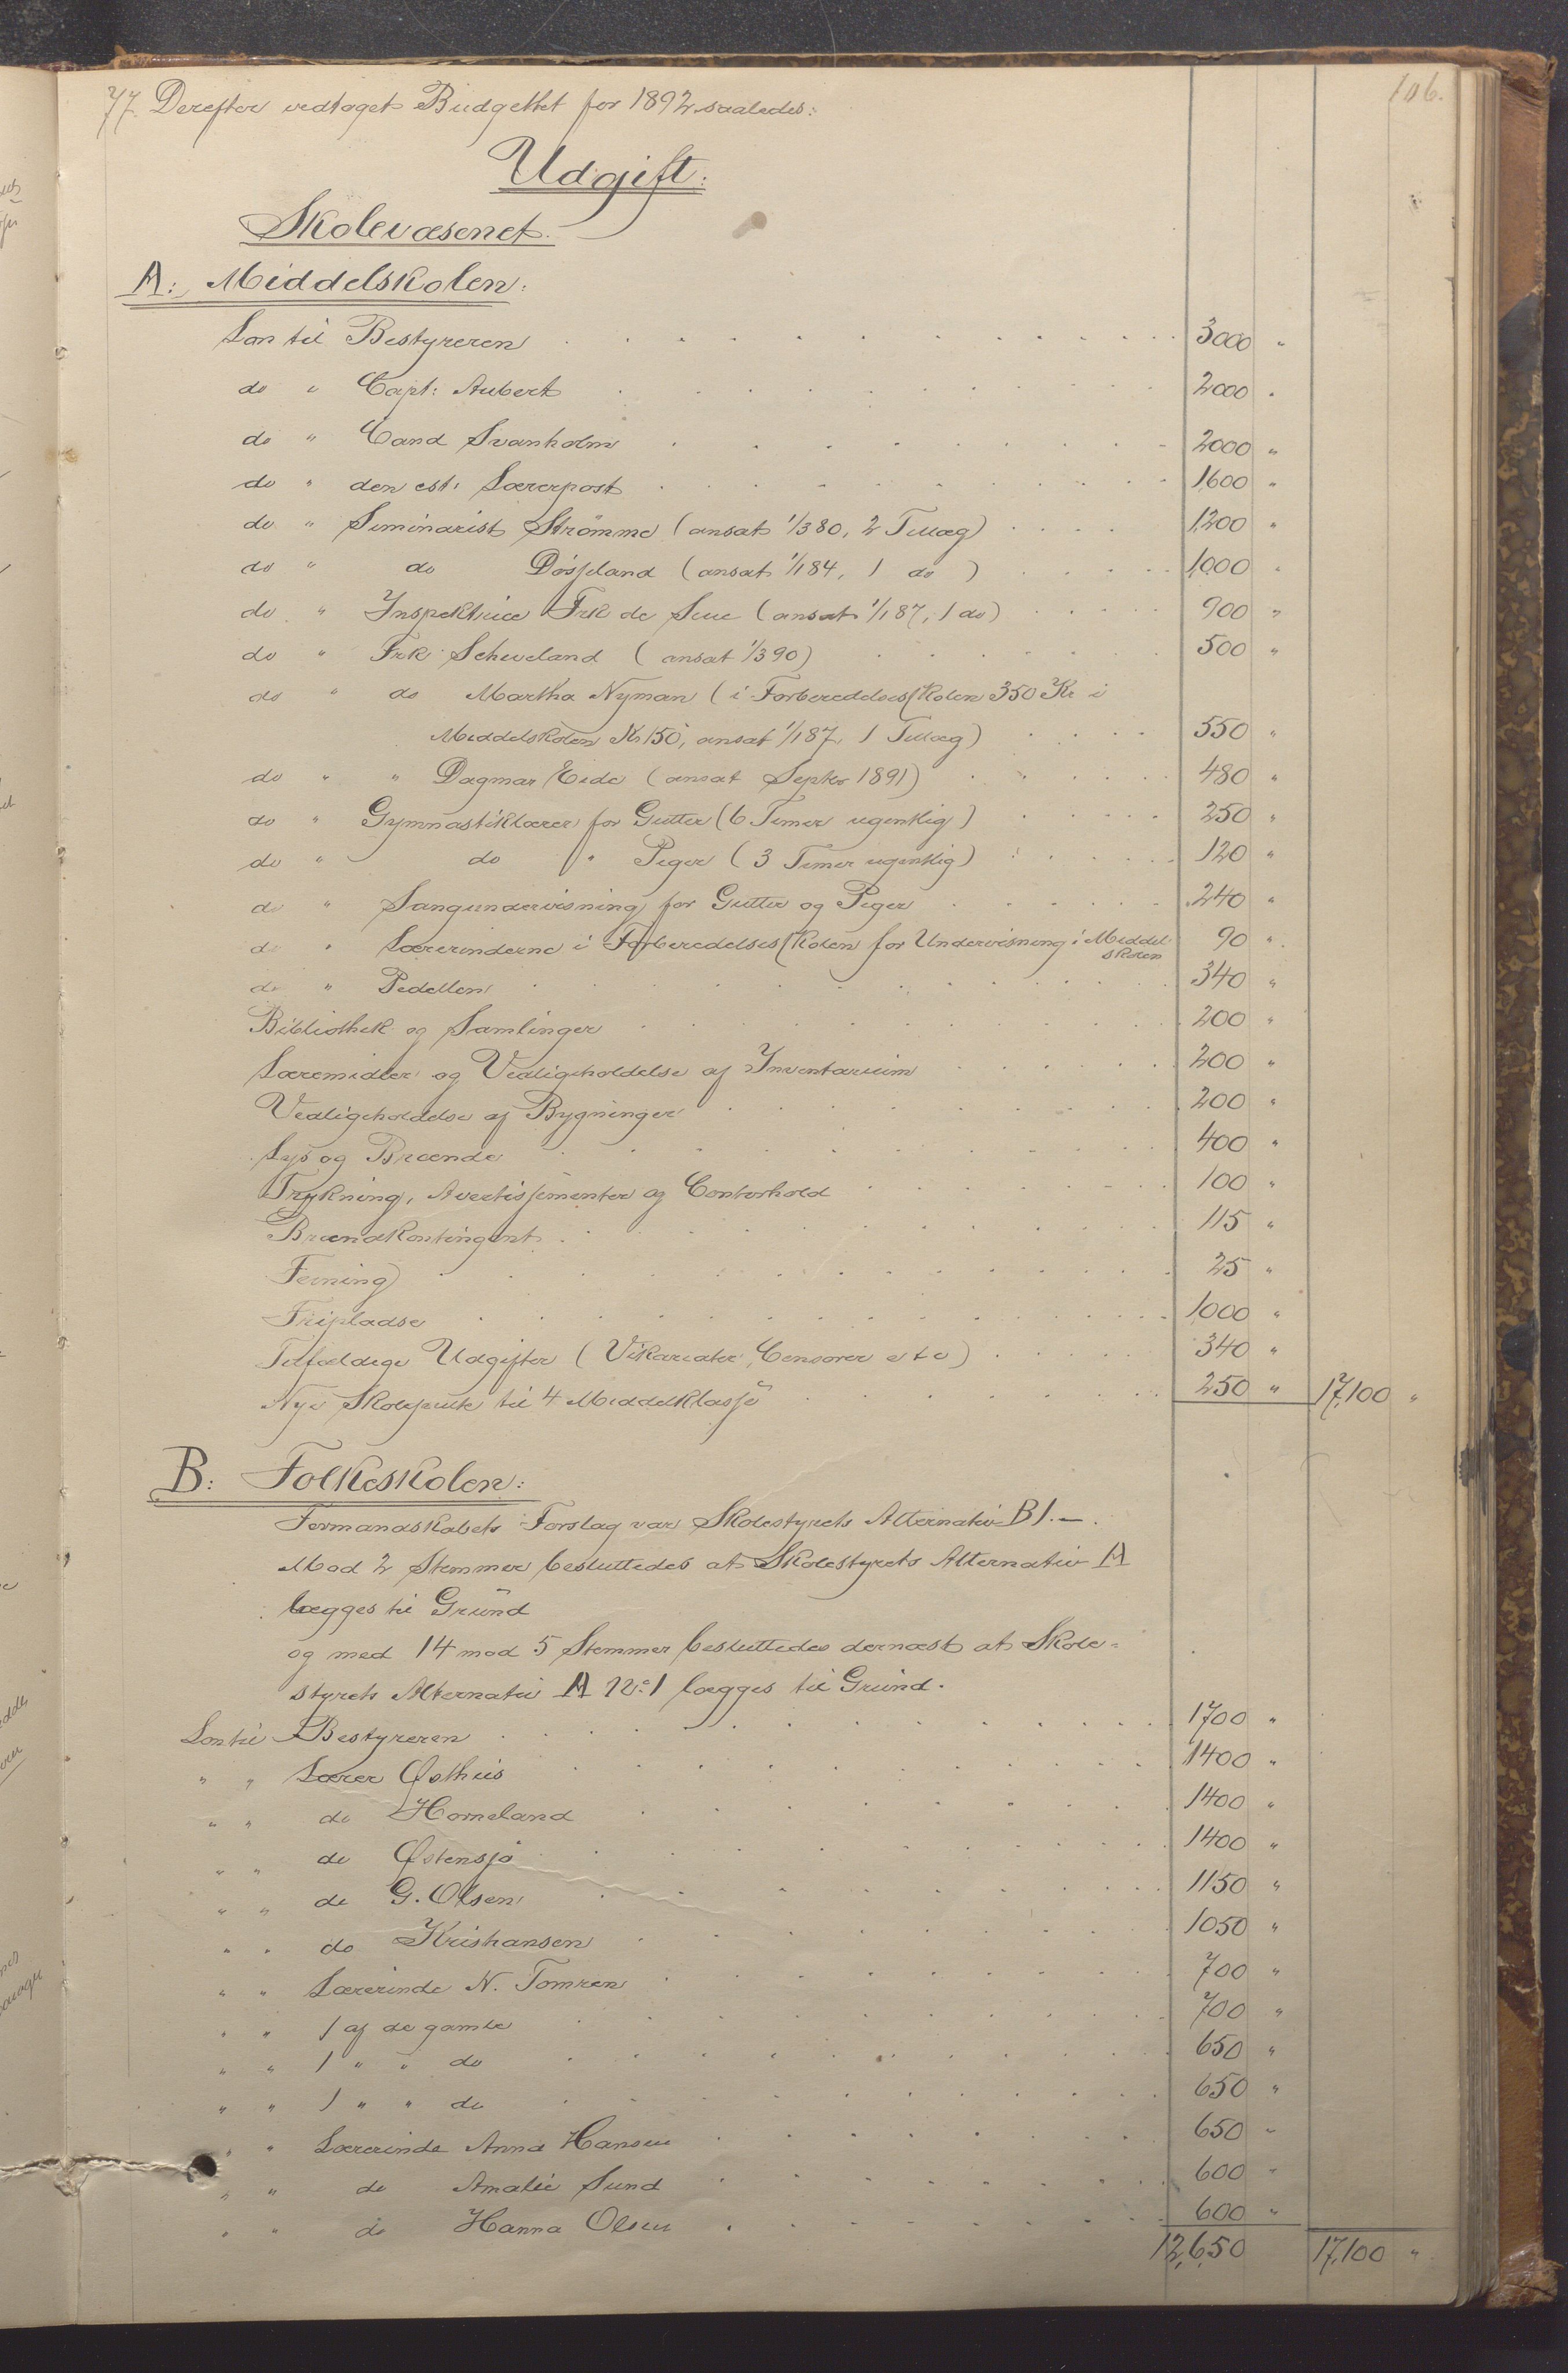 106.
77. Derefter vedtoges Budgettet for 1892 saaledes:
Udgift:
Skolevæsenet.
A: Middelskolen:
Løn til Bestyreren 3000 "
do " Capt: Aubert 2000 "
do " Cand Svanholm 2000 "
do " den est: Lærerpost 1600 "
do " Seminarist Strömme (ansat 1/3 80, 2 Tillæg) 1200 "
do " do Døsjeland (ansat 1/1 84, 1 do) 1000 "
do " Inspektrice Frk de Seue (ansat 1/1 87, 1 do) 900 "
do " Frk Scheveland (ansat 1/3 90) 500 "
do " do Martha Nyman (i Forberedelsesskolen 350 Kr i
Middelskolen Kr 150, ansat 1/1 87, 1 Tillæg) 550 "
do " " Dagmar Eide (ansat Septbr 1891) 480 "
do " Gymnastiklærer for Gutter (6 Timer ugentlig) 250 "
do " do " Piger (3 Timer ugentlig) 120 "
do " Sangundervisning for Gutter og Piger 240 "
do " Lærerinderne i Forberedelsesskolen for Undervisning i Middel-
skolen 90 "
do " Pedellen 340 "
Bibliothek og Samlinger 200 "
Læremidler og Vedligeholdelse af Inventarium 200 "
Vedligeholdelse af Bygninger 200 "
Lys og Brænde 400 "
Trykning, Avertissementer og Contorhold 100 "
Brandkontingent 115 "
Feining 25 "
Fripladse 1000 "
Tilfældige Udgifter (Vikariater, Censorer etc) 340 "
Nye Skolepulte til 4 Middelklasse 250 " 17,100 "
B: Folkeskolen:
Formandskabets Forslag var Skolestyrets Alternativ B 1.—.
Mod 2 Stemmer besluttedes at Skolestyrets Alternativ A
lægges til Grund
og med 14 mod 5 Stemmer besluttedes dernæst at Skole-
styrets Alternativ A No 1 lægges til Grund.
Løn til Bestyreren 1700 "
" " Lærer Østhus 1400 "
" " do Homeland 1400 "
" " do Østensjø 1400 "
" " do G. Olsen 1150 "
" " do Kristiansen 1050 "
" " Lærerinde N. Tomren 700 "
" " 1 af de gamle 700 "
" " 1 " " do 650 "
" " 1 " " do 650 "
" " Lærerinde Anna Hansen 650 "
" " do Amalie Sund 600 "
" " do Hanna Olsen 600 "
12,650 17,100 "